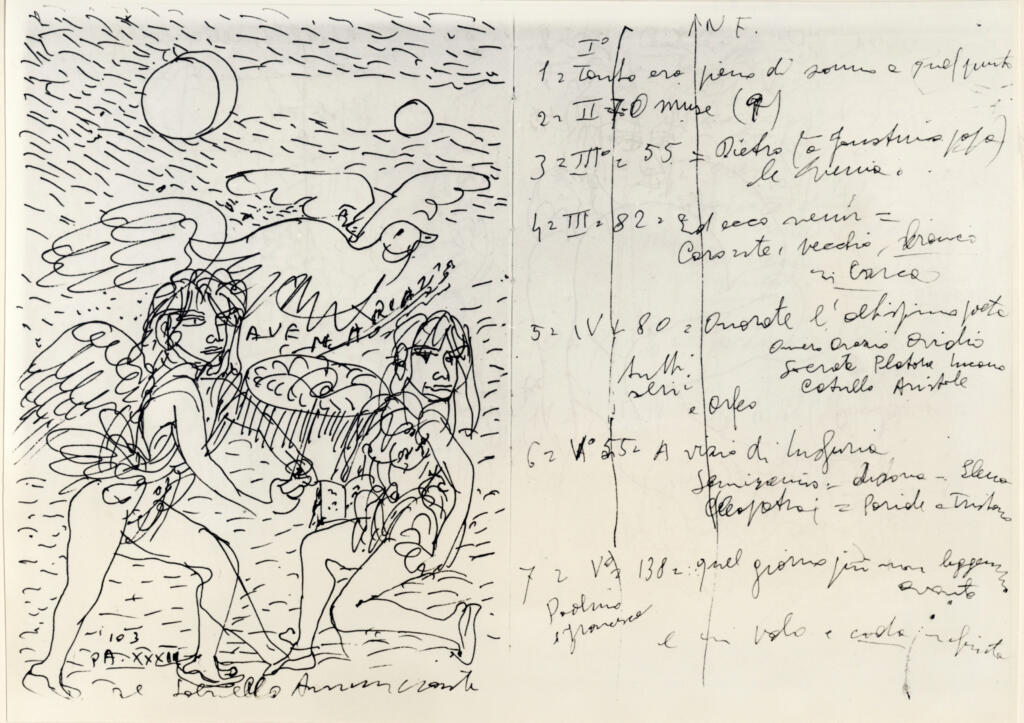 AVE MARIA
103
PA. XXXII
Gabriello Annunciante
INF.
I°
1 = Tanto era pieno di sonno a quel punto
2 = II = 7 = O muse (9)
3 = III° = 55 = Dietro (
la
4 = III = 82 = Ed ecco venir =
Caronte, vecchio, bianco
in barca
5 = IV = 80 = Onorate l'altissimo poeta
Orazio Ovidio
Socrate Platone Lucano
Catullo Aristole
tutti
seri
e Orfeo
6 = V° = 55 = A vizio di lussuria
Semiramis = didone = Elena
Cleopatra = Paride e Tristano
7 = V° = 138 = quel giorno più non leggemmo
avante
Paolino
e francesca
e un volo e